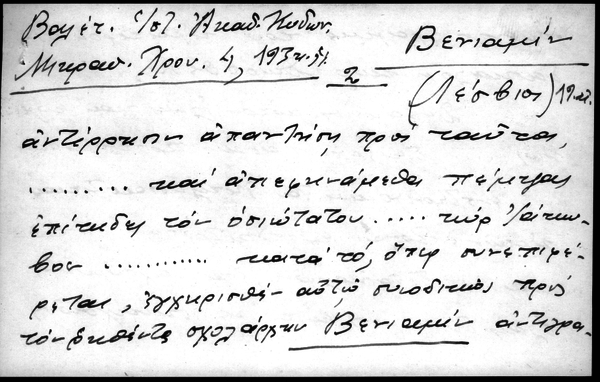 Βαλέτ. Ἱστ. Ἀκαδ. Κυδων.
Μικρασ. Χρον. 4, 193 κ.ἑξ.
2
Βενιαμίν
(Λέσβιος) 19 αἰ.
ἀντίρρησιν ἀπαντήσῃ πρὸς ταῦτα,
......... καὶ ἀπεφηνάμεθα πέμψαι
ἐπίτηδες τὸν ὁσιώτατον ..... κὺρ Ἰάκω-
βον ........... κατὰ τό, ὅπερ συνεπιφέ-
ρεται, ἐγχειρισθὲν αὐτῷ συνοδικῶς πρὸς
τὸν ῥηθέντα σχολάρχην Βενιαμὶν ἀντίγρα-